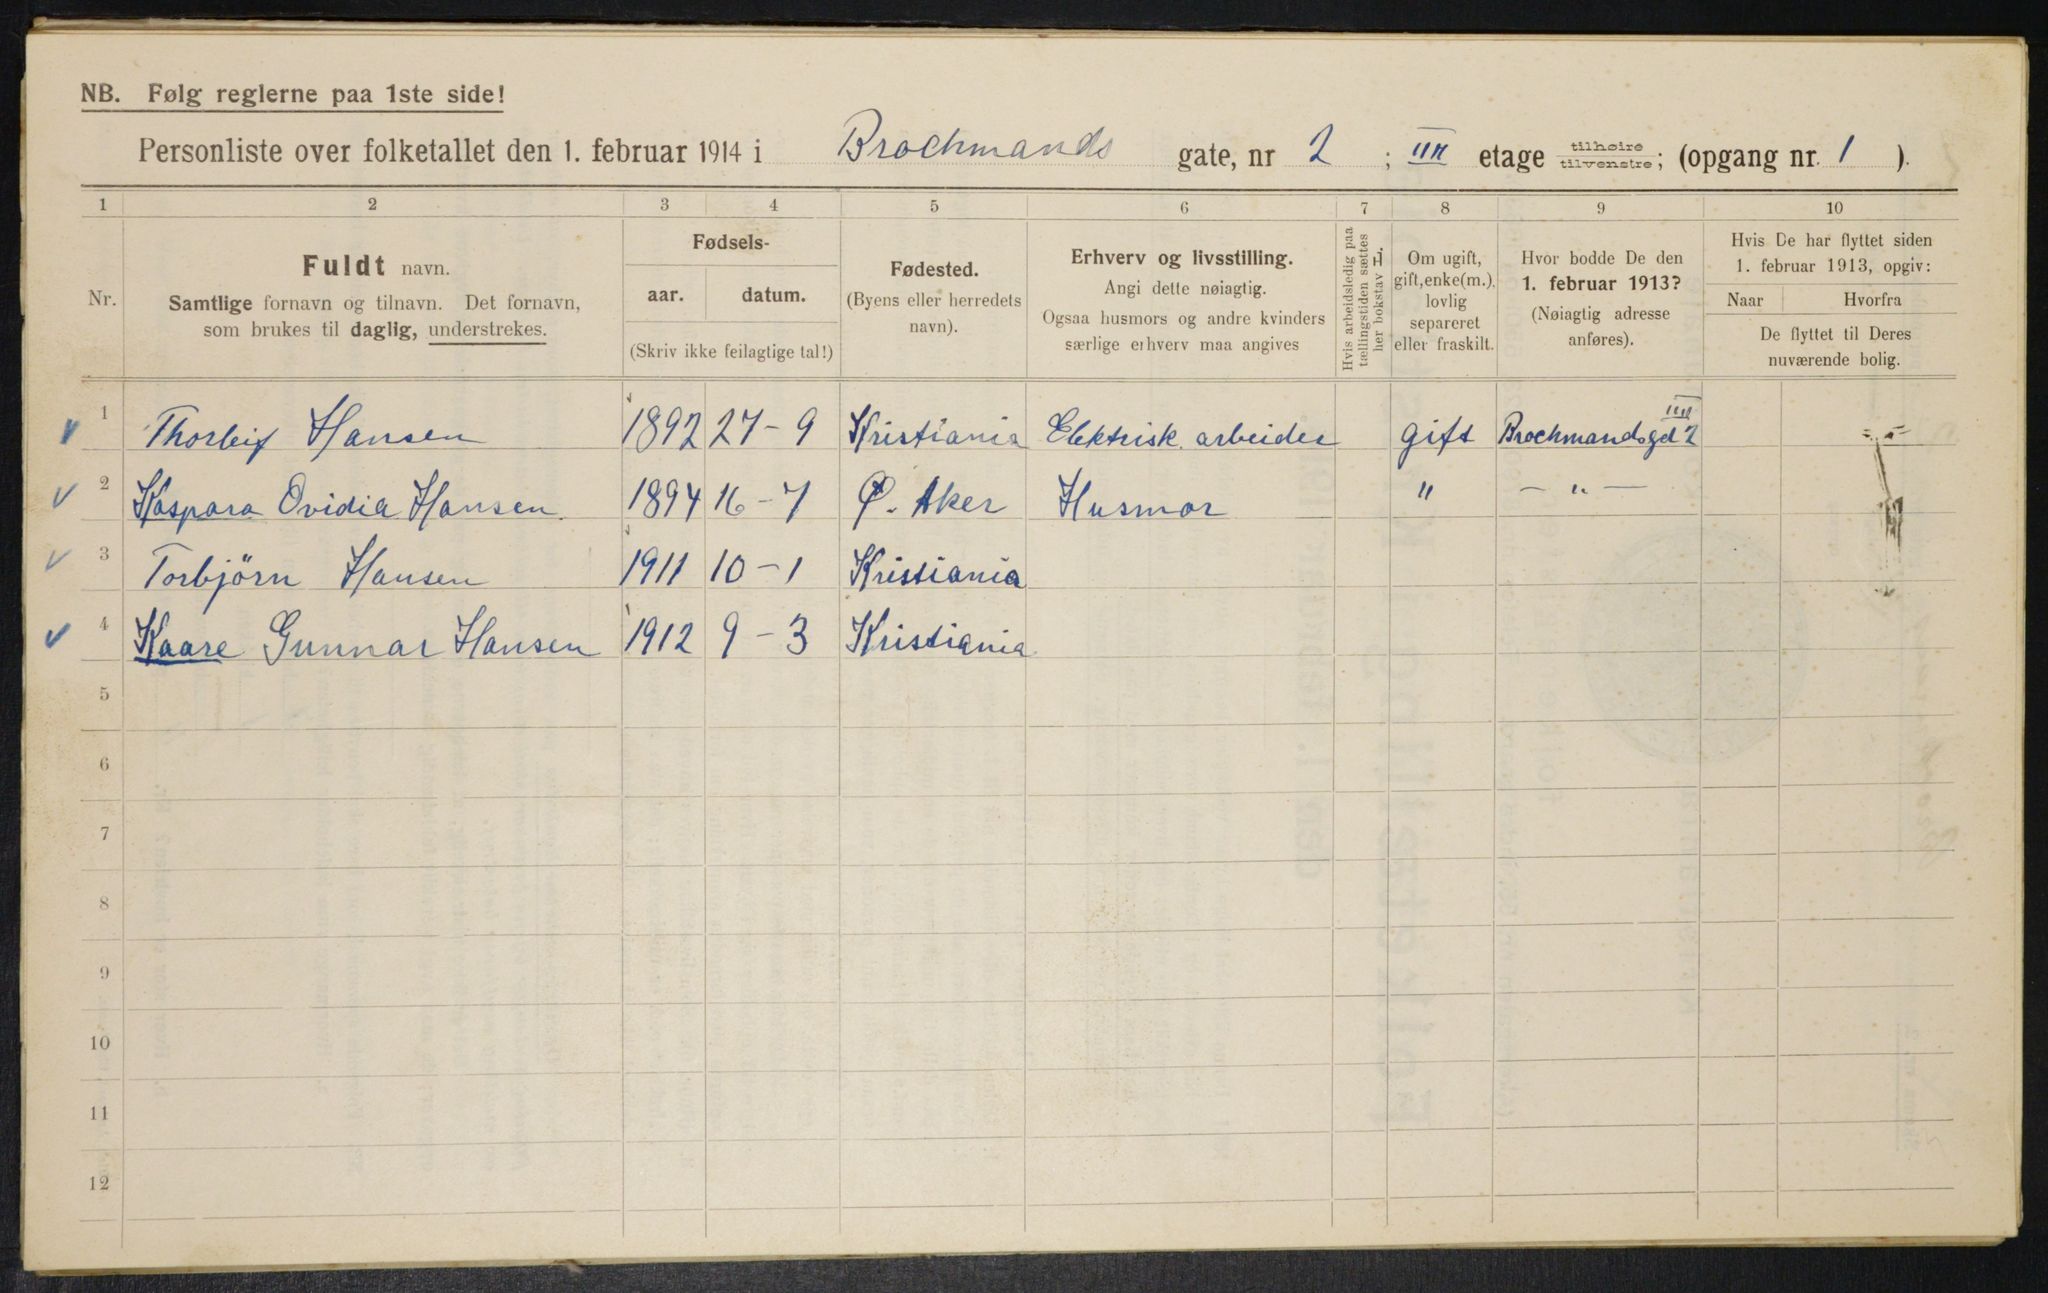 NB. Følg reglerne paa 1ste side!
Personliste over folketallet den 1. februar 1914 i Brochmands gate, nr 2 ; IIII etage tilhøire tilvenstre; (opgang nr. 1 ).
1 2 3 4 5 6 7 8 9 10
Nr.
Fuldt navn.
Samtlige fornavn og tilnavn. Det fornavn,
som brukes til daglig, understrekes.
Fødsels-
aar. datum.
(Skriv ikke feilagtige tal!)
Fødested.
(Byens eller herredets
navn).
Erhverv og livsstilling.
Angi dette nøiagtig.
Ogsaa husmors og andre kvinders
særlige erhverv maa angives
Hvis arbeidsledig paa
tællingstiden sættes
her bokstav L.
Om ugift,
gift, enke(m.),
lovlig
separeret
eller fraskilt.
Hvor bodde De den
1. februar 1913?
(Nøiagtig adresse
anføres).
Hvis De har flyttet siden
1. februar 1913, opgiv:
Naar Hvorfra
De flyttet til Deres
nuværende bolig.
1 Thorleif Hansen 1892 27-9 Kristiania Elektrisk. arbeider gift Brochmandsgd 2 IIII
2 Kaspara Ovidia Hansen. 1894 16-7 Ø. Aker Husmor " — " —
3 Torbjörn Hansen 1911 10-1 Kristiania
4 Kaare Gunnar Hansen 1912 9-3 Kristiania
5
6
7
8
9
10
11
12